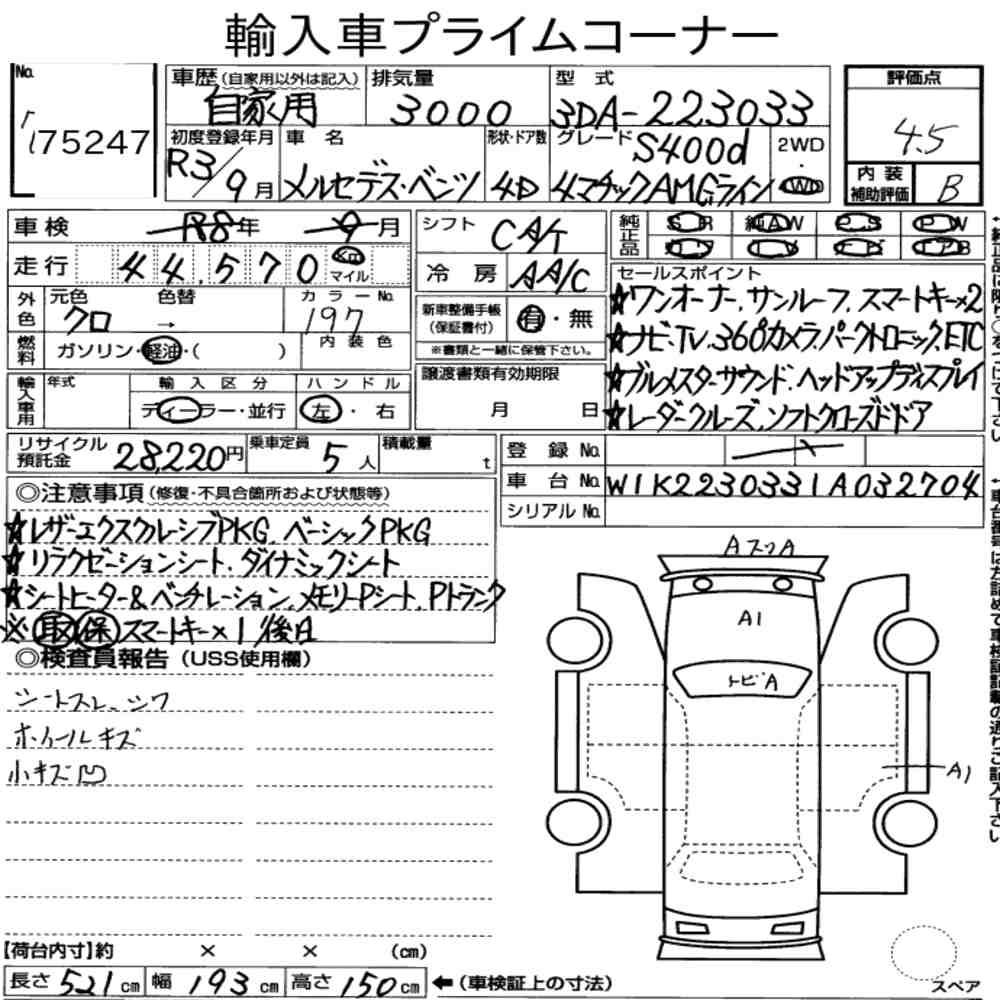 輸入車プライムコーナー
No.
175247
車歴 (自家用以外は記入)
自家用
排気量
3000
型式
3DA-223033
評価点
4.5
内装補助評価
B
初度登録年月
R3/9月
車名
メルセデス・ベンツ
形状・ドア数
4D
グレード
S400d
4マチックAMGライン
2WD
・
4WD
車検 R8年 9月
走行 44,570 Km マイル
シフト CA/T
冷房 AA/C
純正品 SR 純AW PS PW
外色
元色 クロ
色替 →
カラーNo. 197
燃料 ガソリン・軽油・( )
内装色
新車整備手帳(保証書付) 有・無
※書類と一緒に保管下さい。
セールスポイント
☆ワンオーナー、サンルーフ、スマートキー×2
☆ナビ・TV、360°カメラ、パークトロニック、ETC
☆ブルメスターサウンド、ヘッドアップディスプレイ
☆レーダークルーズ、ソフトクローズドドア
輸入車用 年式
輸入区分
ディーラー・並行
ハンドル
左・右
譲渡書類有効期限
月 日
リサイクル預託金 28,220円
乗車定員 5人
積載量 t
登録No.
車台No. W1K2230331A032704
シリアルNo.
◎注意事項(修復・不具合箇所および状態等)
☆レザーエクスクルーシブPKG、ベーシックPKG
☆リラクゼーションシート、ダイナミックシート
☆シートヒーター&ベンチレーション、メモリーPシート、Pトランク
※取保スマートキー×1/後日
◎検査員報告(USS使用欄)
シートスレ、シワ
ホイールキズ
小キズ凹
AスリA
A1
トビA
A1
【荷台内寸】約 × × (cm)
長さ521cm 幅193cm 高さ150cm ←(車検証上の寸法)
スペア